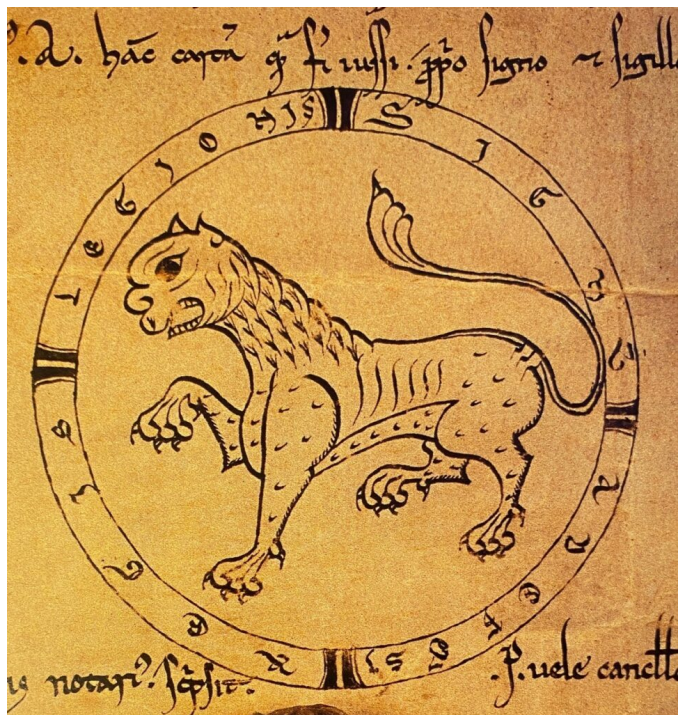 .A. hāc cartā q̄ fi iussi. ꝓpo signo ⁊ sigillo
SIGNU
ADEFOSI
REGIS
LEGIONIS
notariꝰ. sc̄psit.
.P. uele cancell